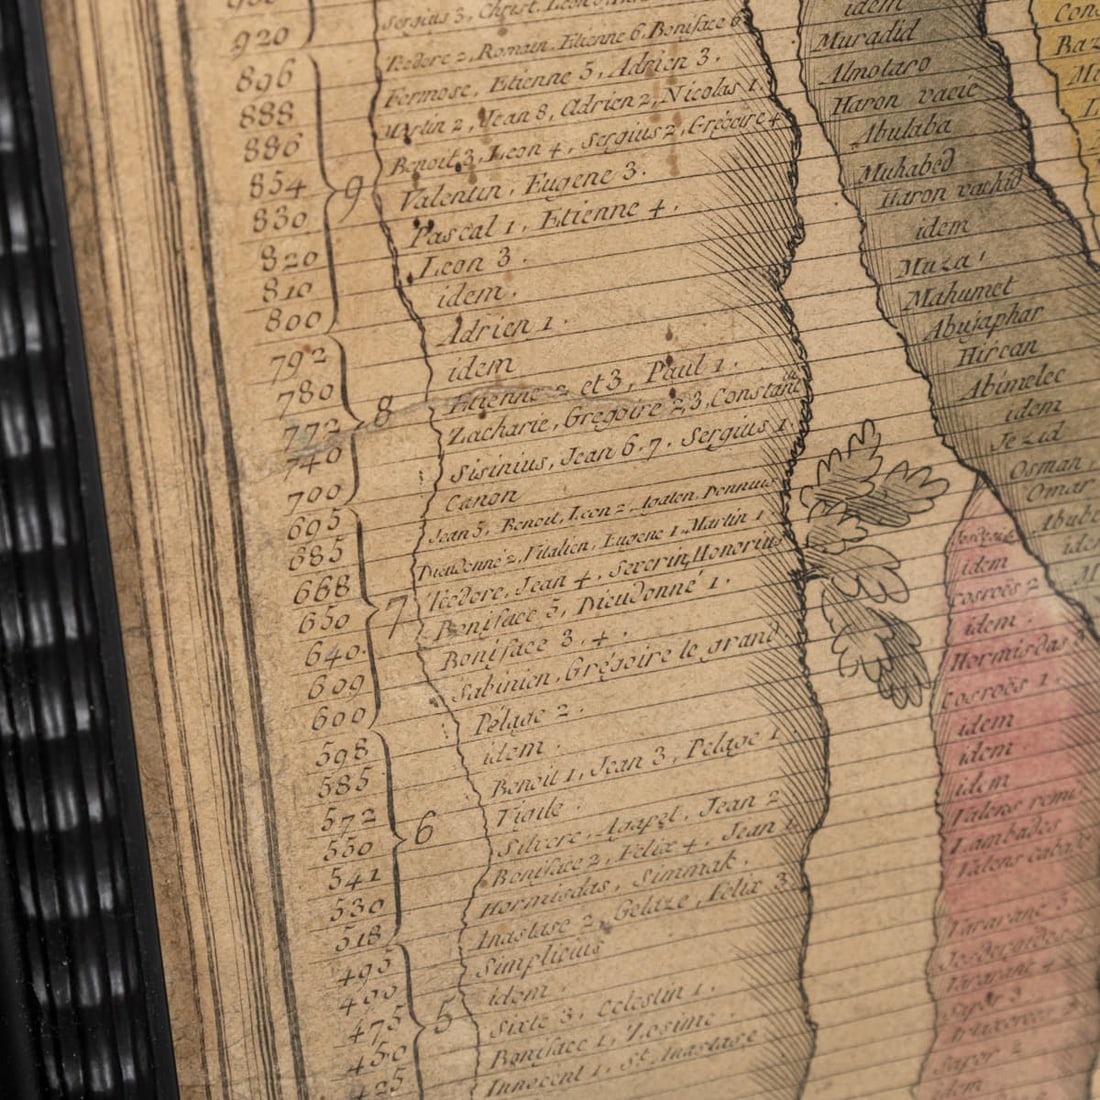 920
896
888
886
854
830
820
810
800
9
792
780
772
740
700
8
695
685
668
650
640
609
600
7
598
585
572
550
541
530
518
6
495
475
450
425
5
Sergius 3, Christ. Leon
Teodore 2, Romain, Etienne 6, Boniface 6
Formose, Etienne 5, Adrien 3.
Martin 2, Jean 8, Adrien 2, Nicolas 1.
Benoit 3, Leon 4, Sergius 2, Grégoire 4
Valentin, Eugene 3.
Pascal 1, Etienne 4.
Leon 3.
idem.
Adrien 1.
idem
Etienne 2 et 3, Paul 1.
Zacharie, Gregoire 2,3, Constant
Sisinius, Jean 6.7, Sergius 1.
Canon
Jean 5, Benoit, Leon 2, Agaton, Donnus
Dieudonné 2, Vitalien, Eugene 1, Martin 1
Teodore, Jean 4, Severin, Honorius
Boniface 5, Dieudonné 1.
Boniface 3, 4.
Sabinien, Grégoire le grand
Pélage 2.
idem.
Benoit 1, Jean 3, Pelage 1
Vigile.
Silvere, Agapet, Jean 2
Boniface 2, Felix 4, Jean 1.
Hormisdas, Simmak.
Anastase 2, Gelaze, Felix 3.
Simplicius
idem.
Sixte 3, Celestin 1.
Boniface 1, Zosime.
Innocent 1, St. Anastase
idem
Muradid
Almotaro
Haron vacie
Abulaba
Muhabed
Haron vachid
idem
Muza
Mahumet
Abujaphar
Hircan
Abimelec
idem
Jezid
Osman,
Omar
Abub
ide
M
idem
cosroës 2
idem.
Hormisdas
Cosroës 1.
idem
idem
idem
Valens
Lambades
Valens
Vararane 5
Sapor 3
Sapor 2
idem
Con
Baz